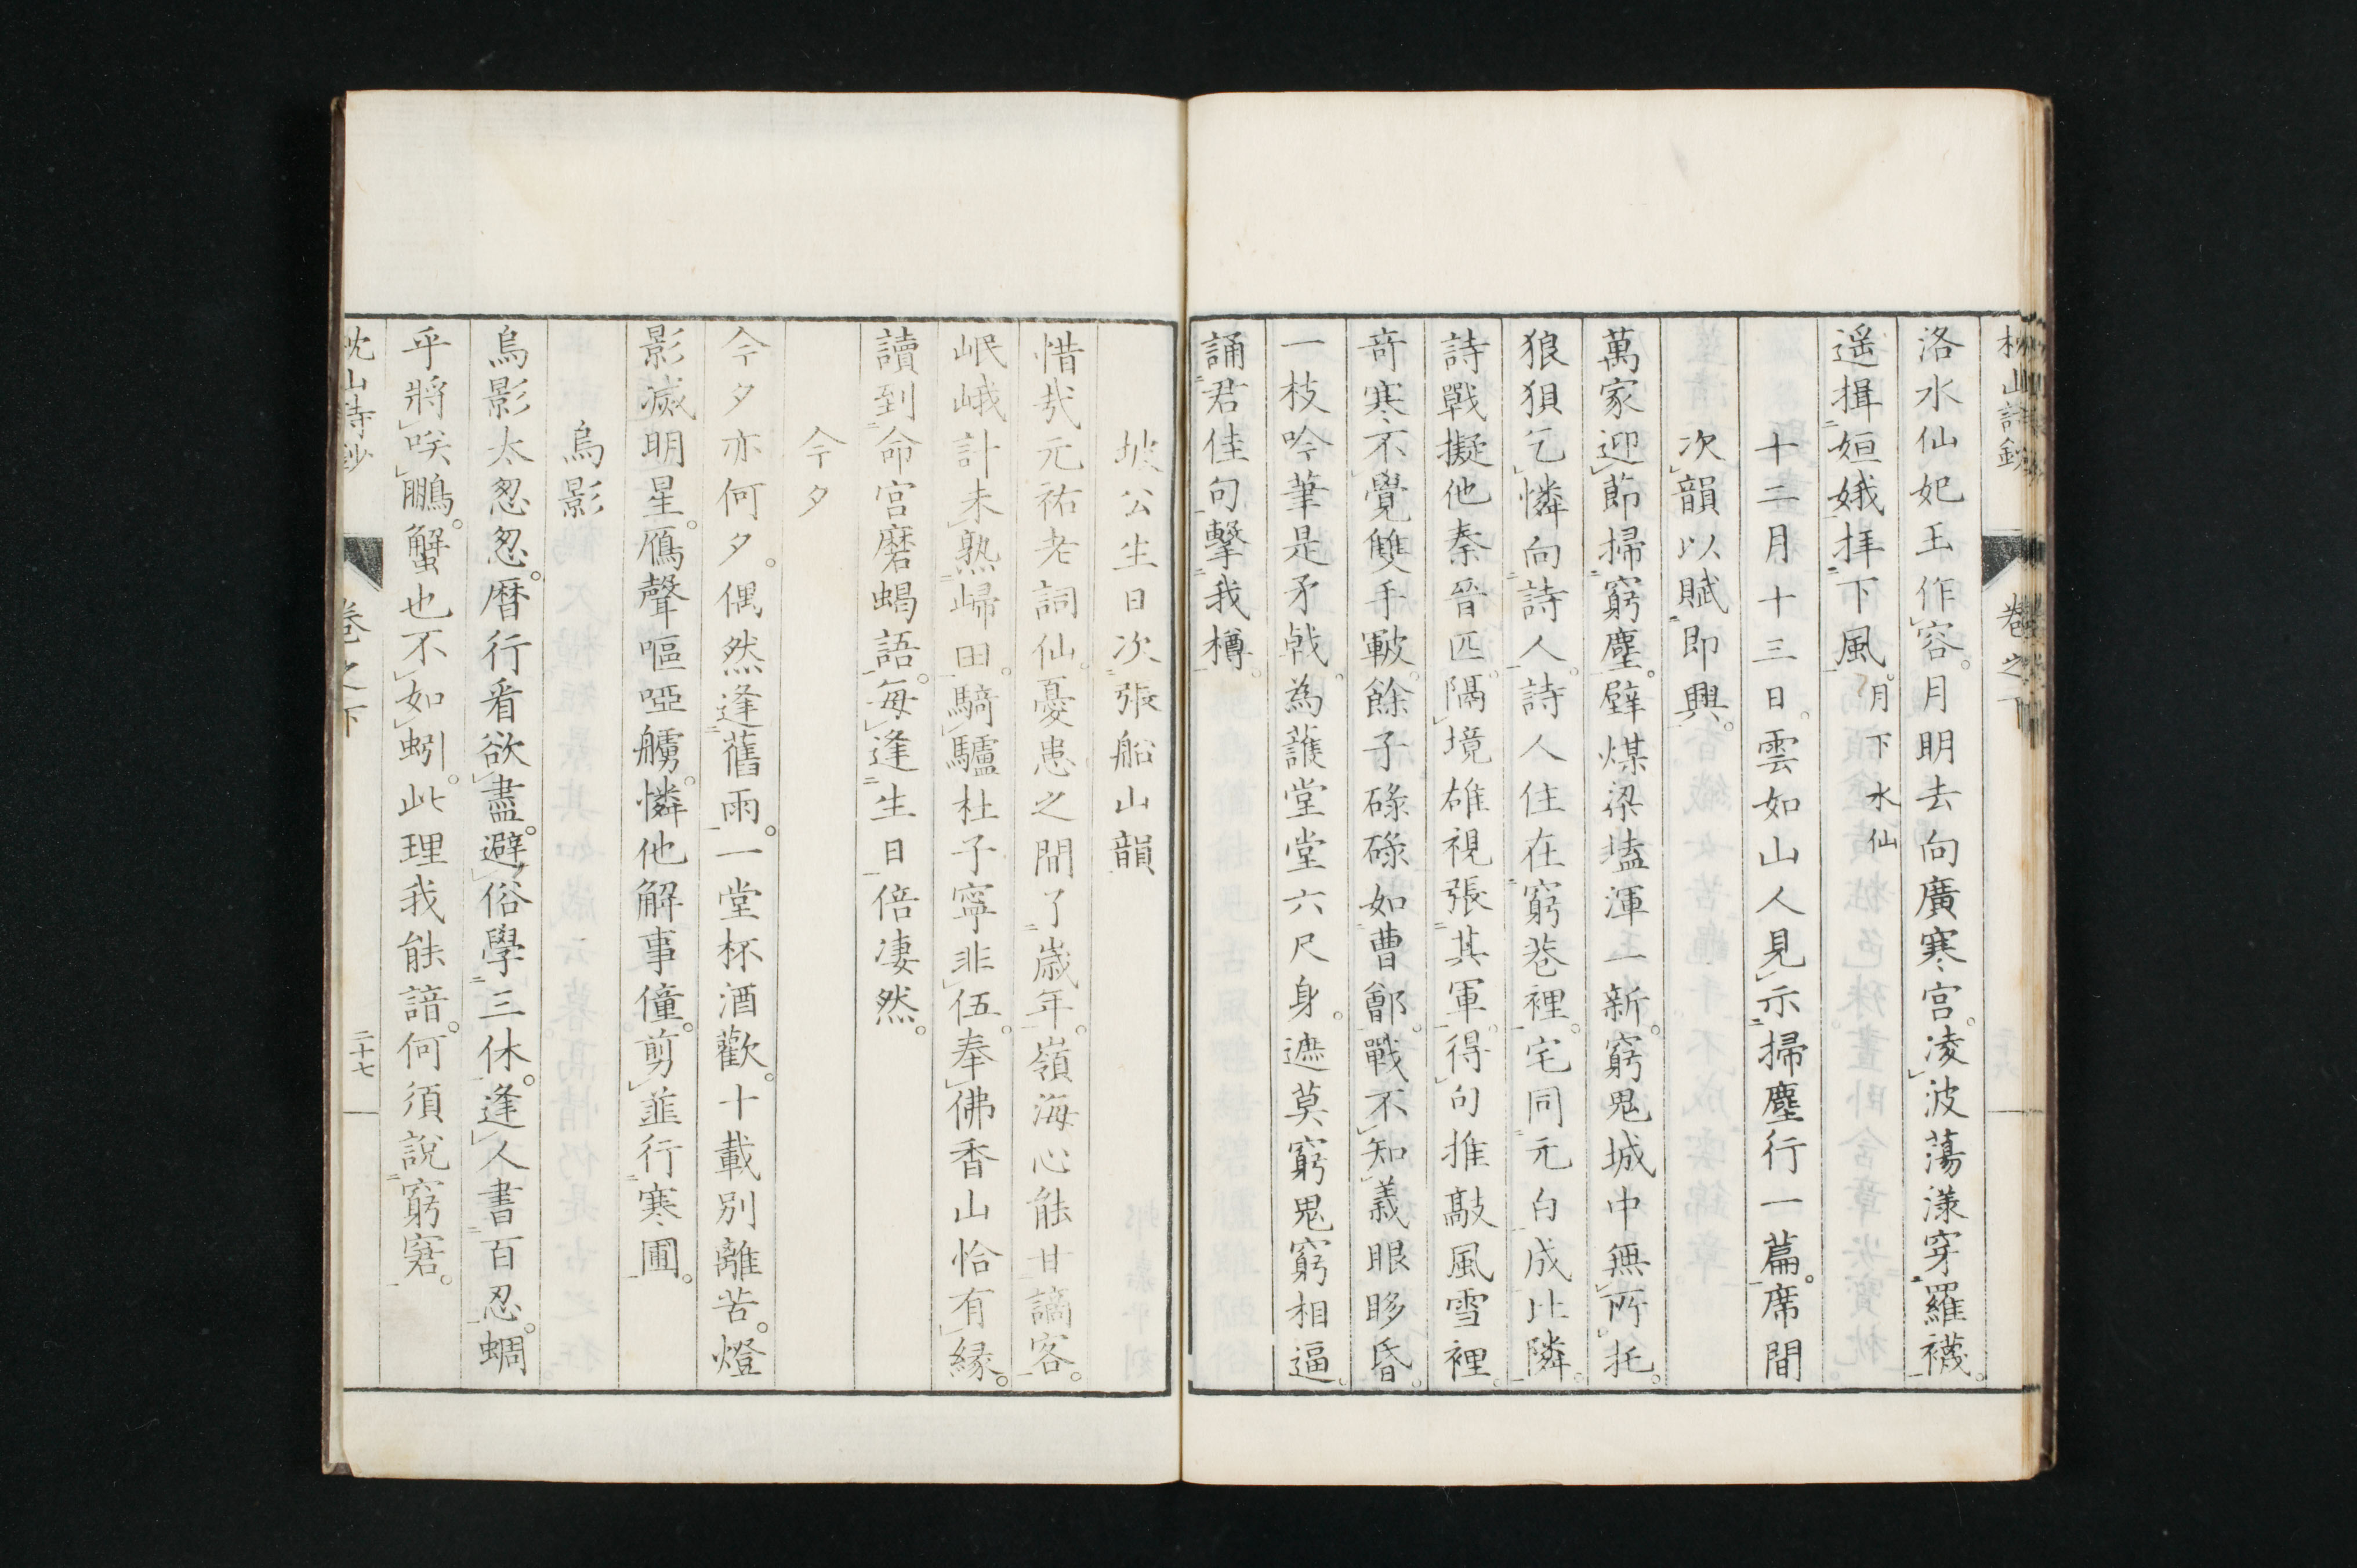 枕山詩鈔 卷之下
洛水仙妃玉作容。月明去向廣寒宮。凌波蕩漾穿羅襪。
遥揖姮娥拝下風。月下水仙
十二月十三日。雲如山人見示掃塵行一篇。席間
次韻以賦即興。
萬家迎節掃窮塵。壁煤梁𡏖渾一新。窮鬼城中無所托。
狼狽乞憐向詩人。詩人住在窮巷裡。宅同元白成比隣。
詩戰擬他秦晉匹。隔境雄視張其軍。得句推敲風雪裡。
奇寒不覺雙手皸。餘子碌碌如曹鄶。戰不知義眼眵昏。
一枝吟筆是矛戟。為護堂堂六尺身。遮莫窮鬼窮相逼。
誦君佳句擊我樽。
坡公生日次張船山韻
惜哉元祐老詞仙。憂患之間了歳年。嶺海心能甘謫客。
岷峨計未熟歸田。騎驢杜子寧非伍。奉佛香山恰有縁。
讀到命宮磨蝎語。每逢生日倍凄然。
今夕
今夕亦何夕。偶然逢舊雨。一堂杯酒歡。十載別離苦。燈
影滅明星。鴈聲嘔啞艣。憐他解事僮。剪韮行寒圃。
烏影
烏影太怱怱。暦行看欲盡。避俗學三休。逢人書百忍。蜩
乎將咲鵬。蟹也不如蚓。此理我能諳。何須說窮窘。
枕山詩鈔 卷之下 二十七